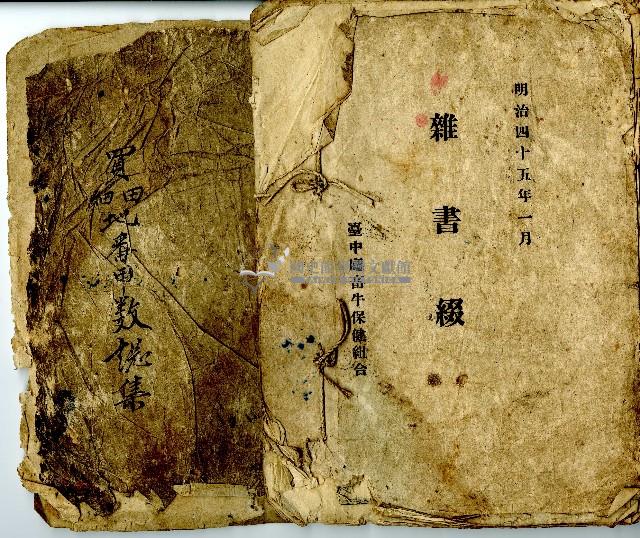 明治四十五年一月
雜書綴
臺中廳畜牛保健組合
買田
地番田数総集
國史館臺灣文獻館